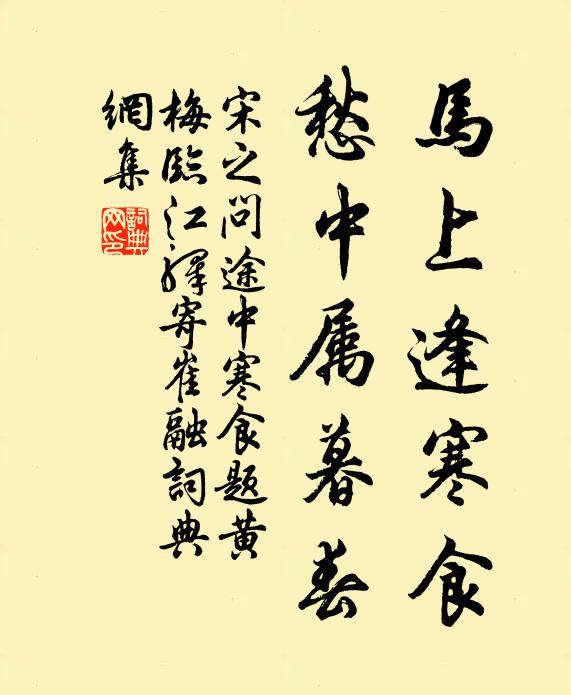 馬上逢寒食
愁中属暮春
宋之问途中寒食题黄
梅臨江驛寄崔融詞典
網集
詞典
网印